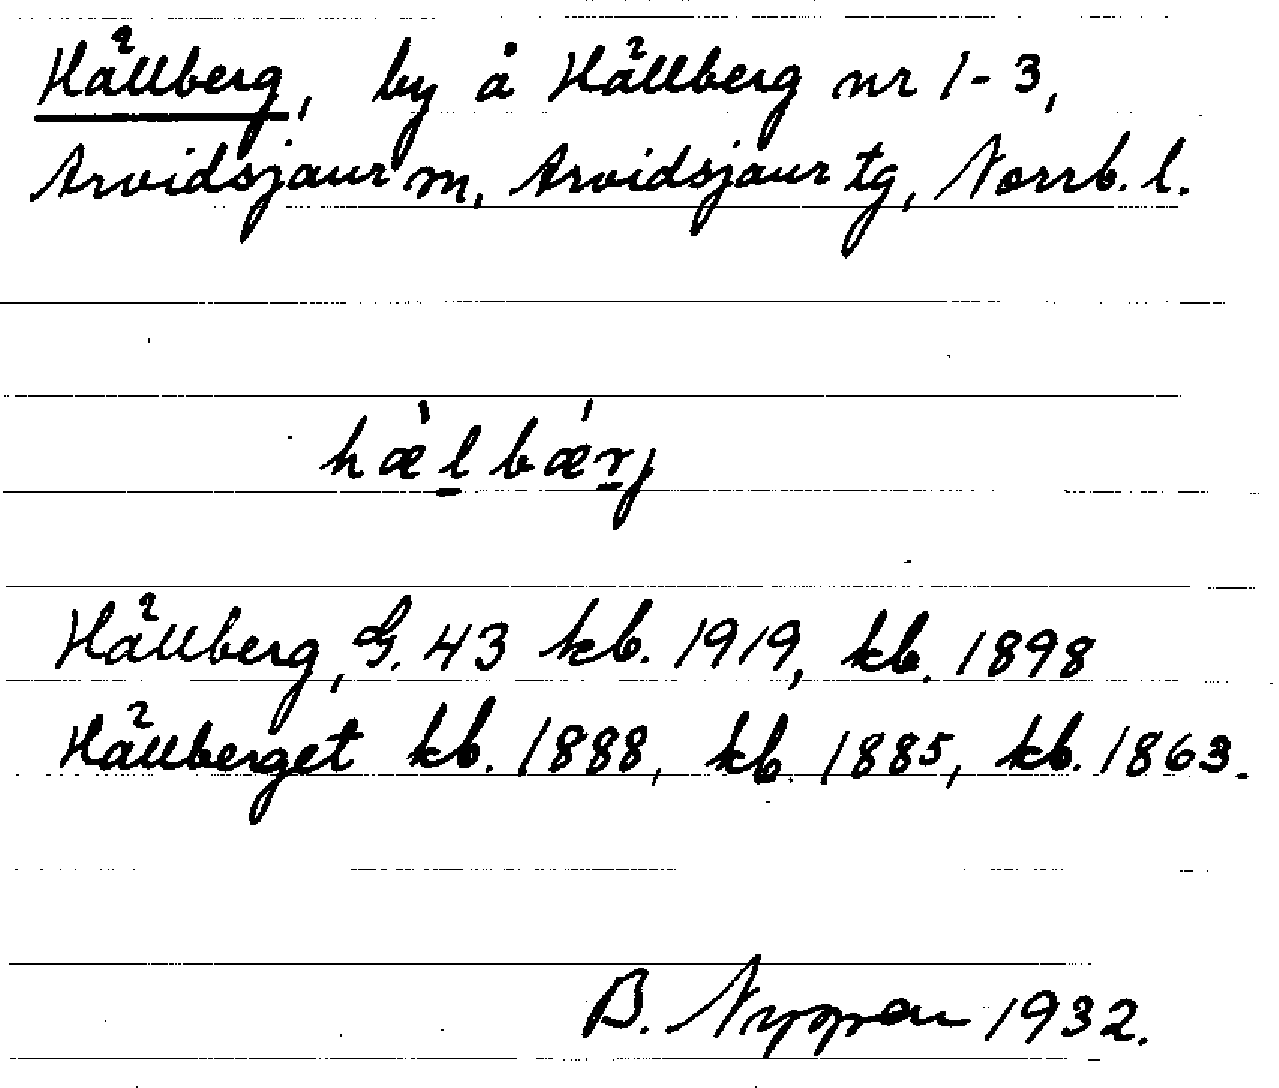 Hällberg, by å Hällberg nr 1-3,
Arvidsjaur sn, Arvidsjaur tg, Norrb. l.
hæ̀l̲bǽr̲j
Hällberg, G. 43 kb. 1919, kb. 1898
Hällberget kb. 1888, kb. 1885, kb. 1863.
B. 1932.